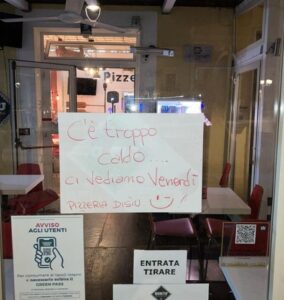 Pizze
C'è troppo
caldo....
ci vediamo Venerdì
PIZZERIA DISIU..
AVVISO
AGLI UTENTI
GREEN PASS
ENTRATA
TIRARE